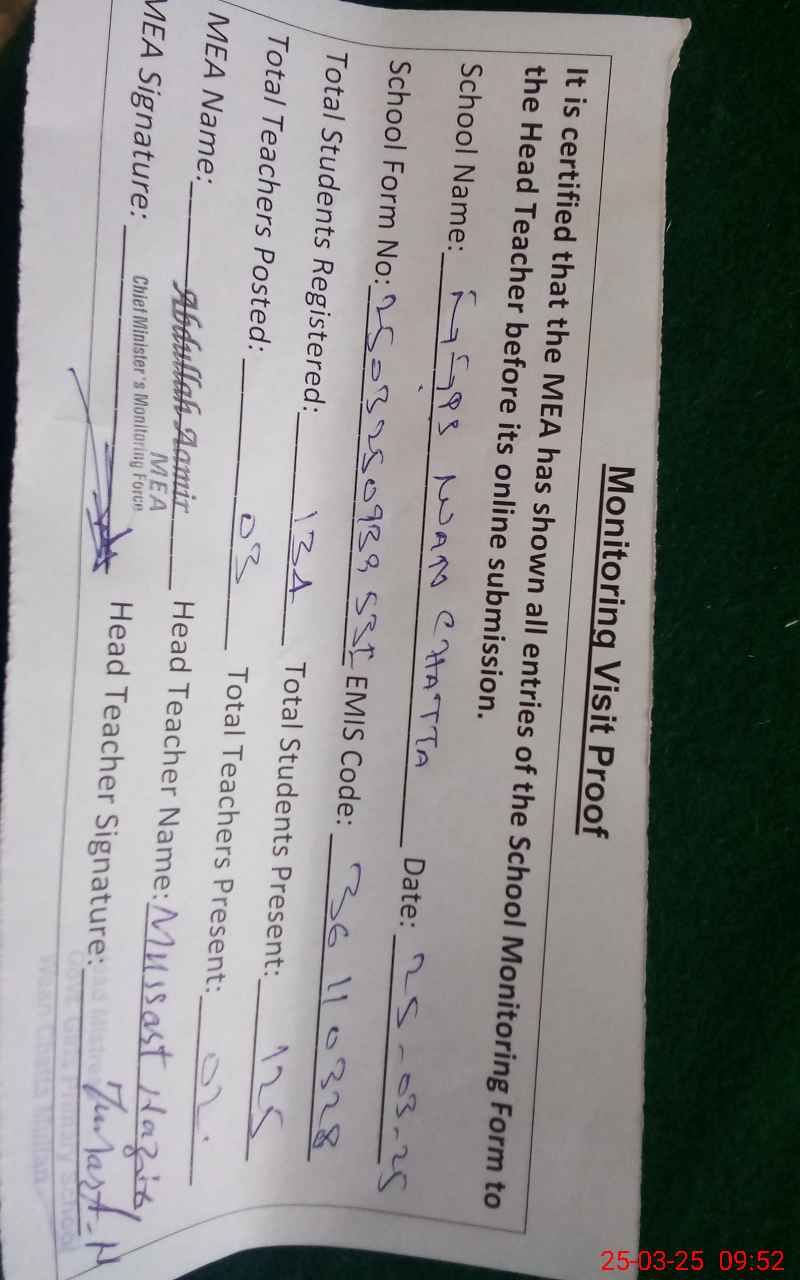 Monitoring Visit Proof
It is certified that the MEA has shown all entries of the School Monitoring Form to
the Head Teacher before its online submission.
School Name: WAN CHATTA Date: 25-03-25
School Form No: EMIS Code: 36110328
Total Students Registered: 131 Total Students Present: 125
Total Teachers Posted: 03 Total Teachers Present: 02
MEA Name: Abdullah Aamir Head Teacher Name: Mussast
MEA
Chief Minister's Monitoring Force
MEA Signature: Head Teacher Signature:
Govt. Girls Primary School
25-03-25 09:52